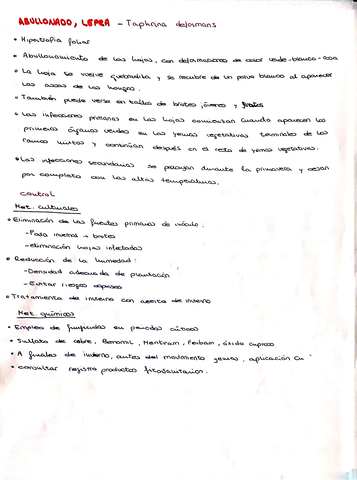 ABULLONADO, LEPRA - Taphrina deformans
• Hipertrofia foliar
• Abullonamiento de las hojas, con deformaciones de color verde-blanco-rosa
• La hoja se vuelve quebradiza y se recubre de un polvo blanco al aparecer
las ascas de los hongos.
• También puede verse en tallos de brotes jóvenes y frutos
• Las infecciones primarias en las hojas comienzan cuando aparecen los
primeros órganos verdes en las yemas vegetativas terminales de los
ramos mixtos y continúan después en el resto de yemas vegetativas.
• Las infecciones secundarias se producen durante la primavera y cesan
por completo con las altas temperaturas.
Control
Met. culturales
• Eliminación de las fuentes primarias de inóculo:
- Poda invernal → brotes
- eliminación hojas infectadas
• Reducción de la humedad:
- Densidad adecuada de plantación
- Evitar riegos copiosos
• Tratamiento de invierno con aceite de invierno
Met. químicos
• Empleo de fungicidas en periodos críticos
• Sulfato de cobre, Benomil, Mentiram, Ferbam, óxido cuproso
• A finales de invierno, antes del movimiento yemas, aplicación Cu
• consultar registro productos fitosanitarios.